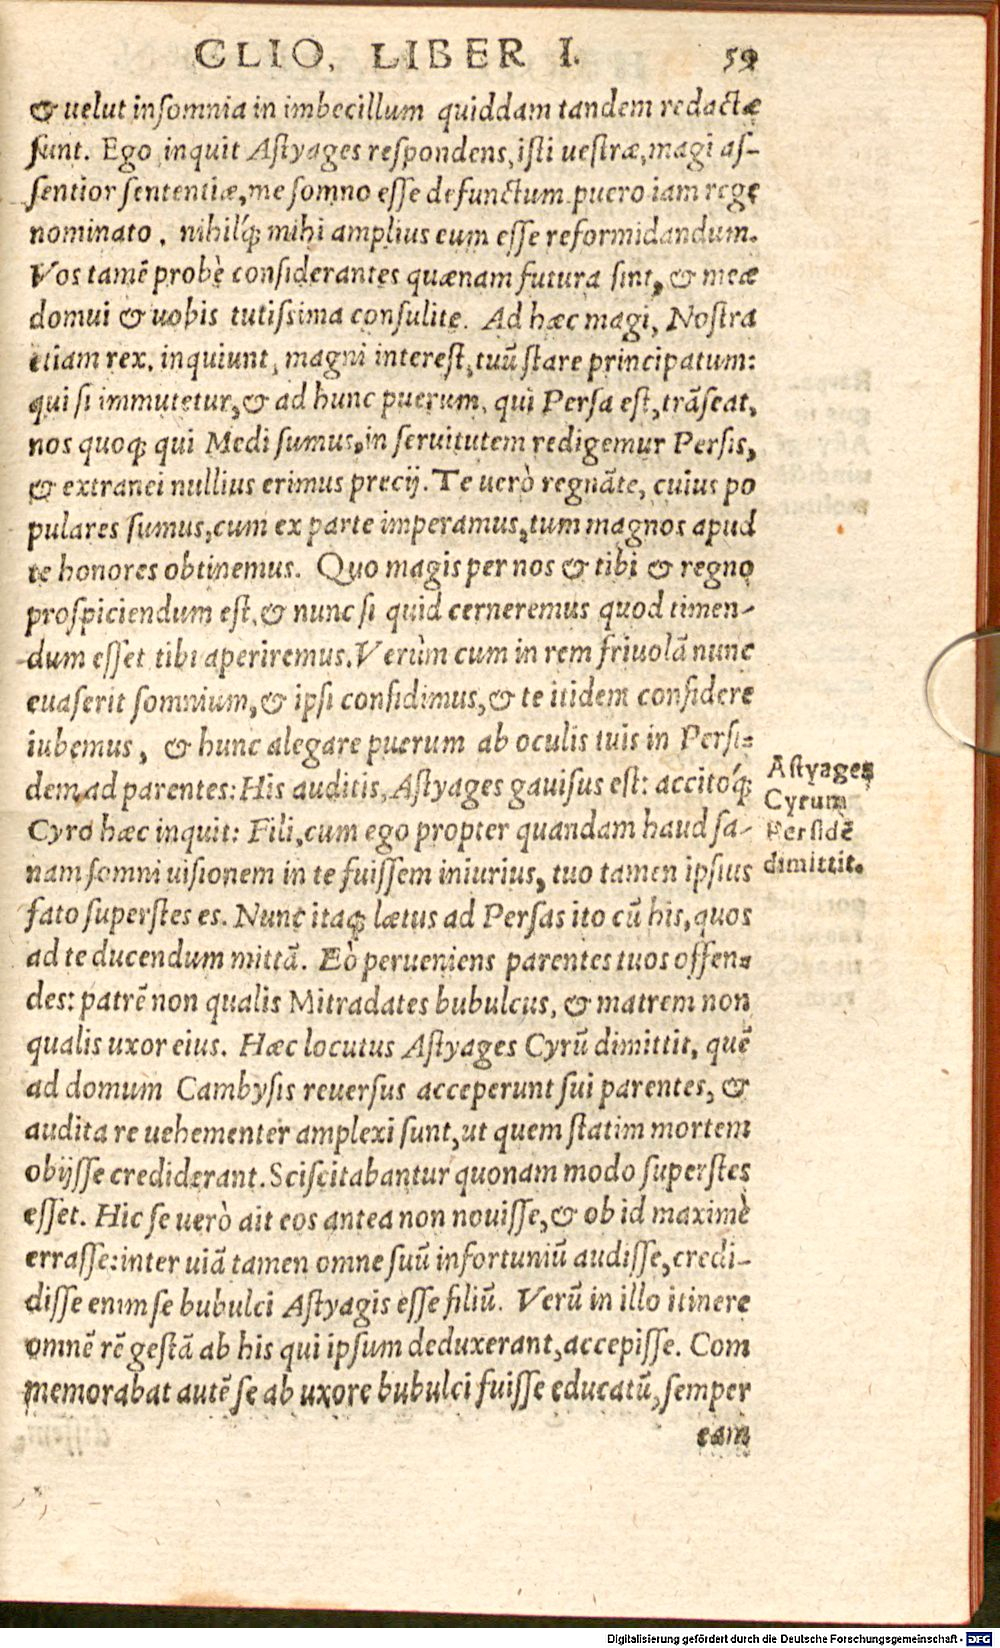 CLIO. LIBER I. 59
& uelut inſomnia in imbecillum quiddam tandem redactæ
ſunt. Ego inquit Aſtyages reſpondens, iſti ueſtræ, magi aſ-
ſentior ſententiæ, me ſomno eſſe defunctum puero iam rege
nominato, nihilq́; mihi amplius eum eſſe reformidandum.
Vos tamē probè conſiderantes quænam futura ſint, & meæ
domui & uobis tutiſsima conſulite. Ad hæc magi, Noſtra
etiam rex, inquiunt, magni intereſt, tuū ſtare principatum:
qui ſi immutetur, & ad hunc puerum, qui Perſa eſt, trāſeat,
nos quoq; qui Medi ſumus, in ſeruitutem redigemur Perſis,
& extranei nullius erimus precij. Te uerò regnāte, cuius po
pulares ſumus, cum ex parte imperamus, tum magnos apud
te honores obtinemus. Quo magis per nos & tibi & regno
proſpiciendum eſt, & nunc ſi quid cerneremus quod timen-
dum eſſet tibi aperiremus. Verùm cum in rem friuolā nunc
euaſerit ſomnium, & ipſi confidimus, & te itidem confidere
iubemus, & hunc alegare puerum ab oculis tuis in Perſi-
dem ad parentes: His auditis, Aſtyages gauiſus eſt: accitoq́;
Cyro hæc inquit: Fili, cum ego propter quandam haud ſa-
nam ſomni uiſionem in te fuiſſem iniurius, tuo tamen ipſius
fato ſuperſtes es. Nunc itaq; lætus ad Perſas ito cū his, quos
ad te ducendum mittā. Eò perueniens parentes tuos offen-
des: patrē non qualis Mitradates bubulcus, & matrem non
qualis uxor eius. Hæc locutus Aſtyages Cyrū dimittit, quē
ad domum Cambyſis reuerſus acceperunt ſui parentes, &
audita re uehementer amplexi ſunt, ut quem ſtatim mortem
obijſſe crediderant. Sciſcitabantur quonam modo ſuperſtes
eſſet. Hic ſe uerò ait eos antea non nouiſſe, & ob id maximè
erraſſe: inter uiā tamen omne ſuū infortuniū audiſſe, credi-
diſſe enim ſe bubulci Aſtyagis eſſe filiū. Verū in illo itinere
omnē rē geſtā ab his qui ipſum deduxerant, accepiſſe. Com
memorabat autē ſe ab uxore bubulci fuiſſe educatū, ſemper
eam
Aſtyages
Cyrum
Perſidē
dimittit.
Digitalisierung gefördert durch die Deutsche Forschungsgemeinschaft - DFG